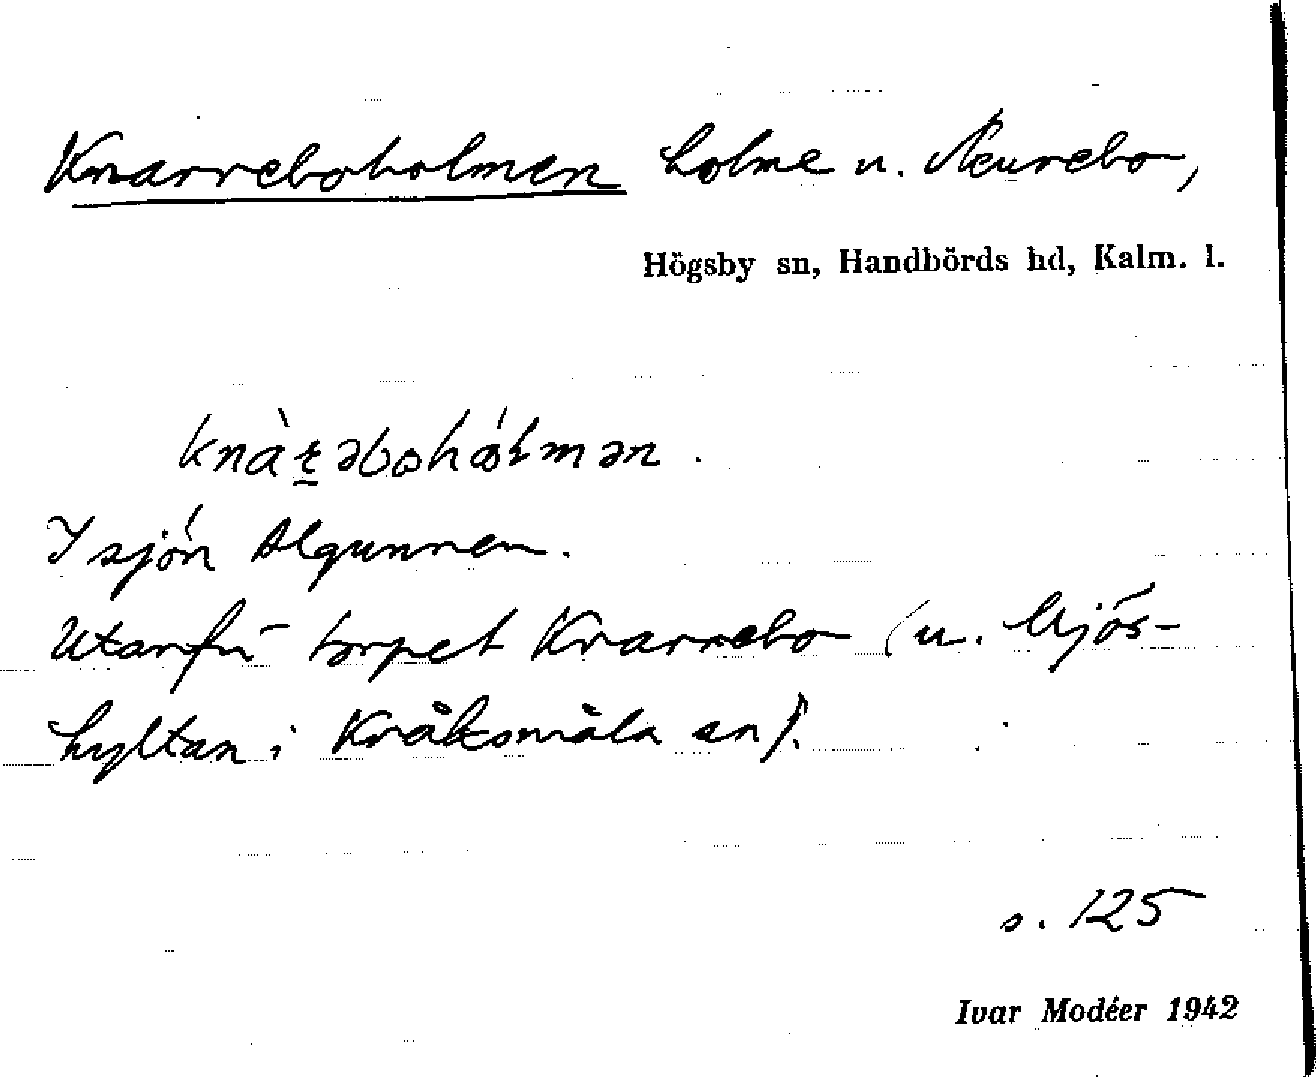 Knarreboholmen holme u. Neurebo,
Högsby sn, Handbörds hd, Kalm. l.
knàr̲əbohólmən.
I sjön Algunnen.
Utanför torpet Knarrebo (u. Mjös-
hyltan i Kråksmåla sn).
s. 125
Ivar Modéer 1942